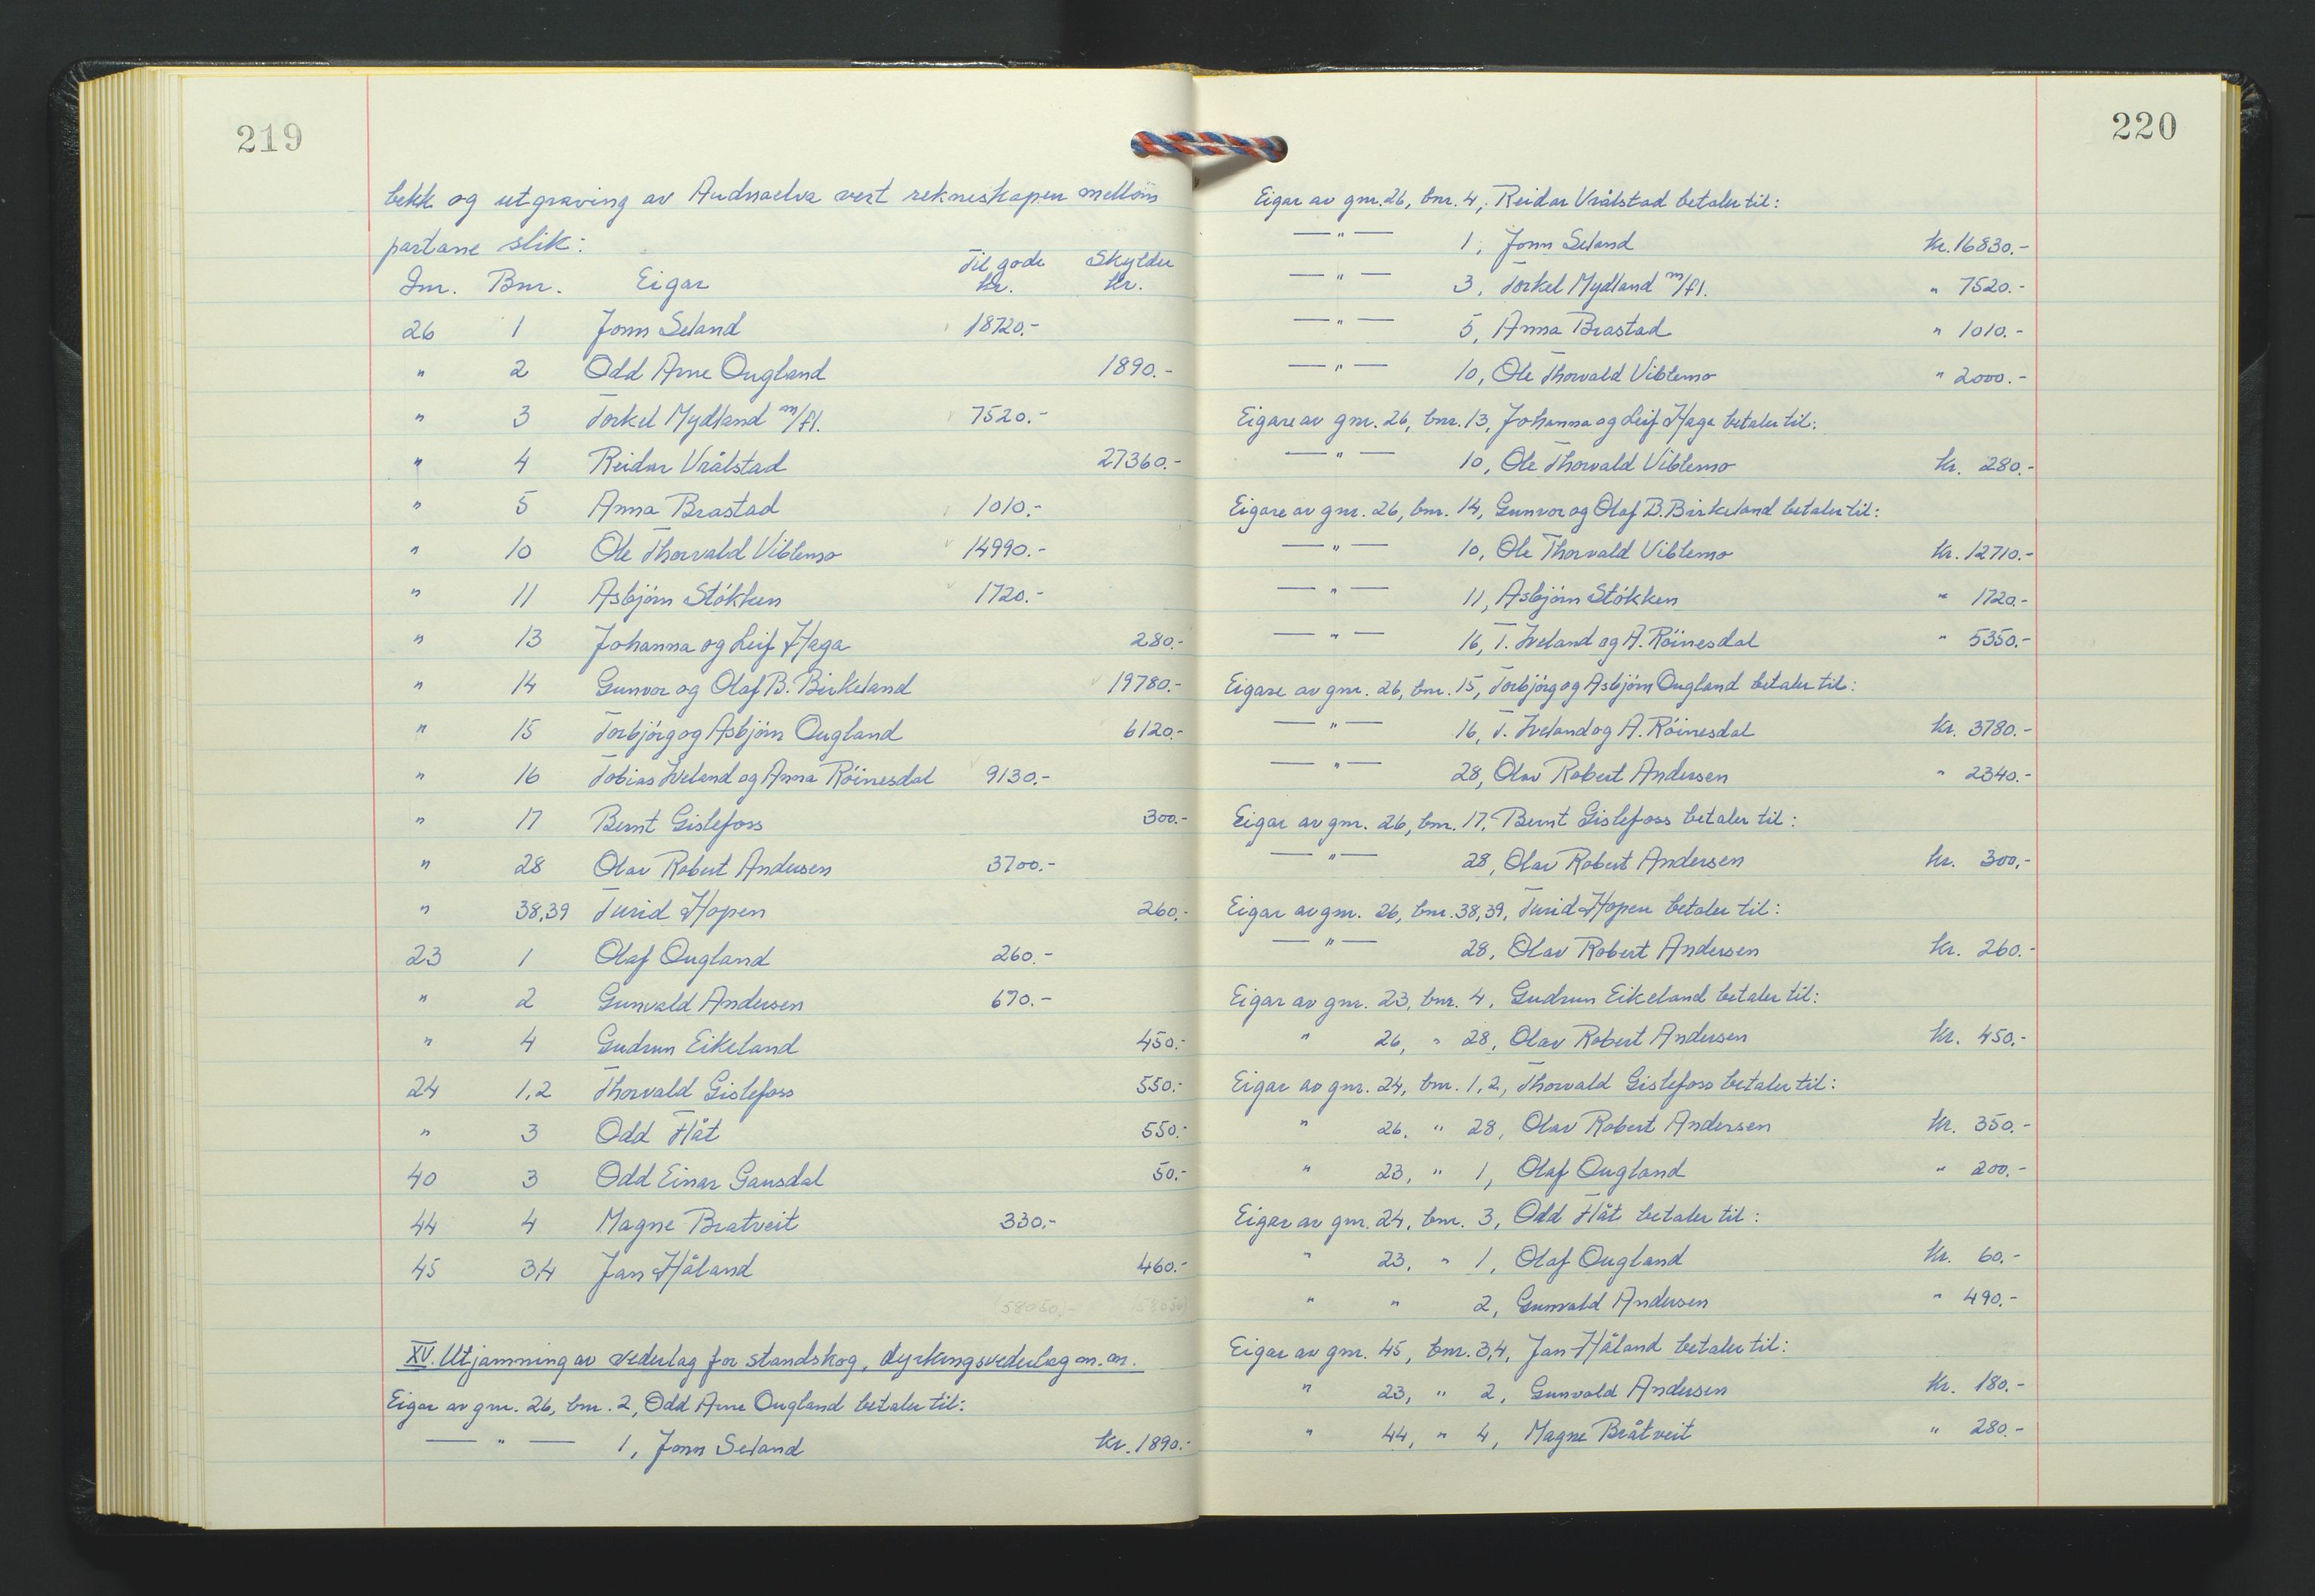 219
bekk og utgraving av Audnaelva vert rekneskapen mellom
partane slik:
Til gode Skylder
Gnr. Bnr. Eigar kr. kr.
26 1 Jonn Seland 18720.-
" 2 Odd Arne Ougland 1890.-
" 3 Torkel Mydland m/fl. 7520.-
" 4 Reidar Vrålstad 27360.-
" 5 Anna Brastad 1010.-
" 10 Ole Thorvald Viblemo 14990.-
" 11 Asbjörn Stökken 1720.-
" 13 Johanna og Leif Haga 280.-
" 14 Gunvor og Olaf B. Birkeland 19780.-
" 15 Torbjörg og Asbjörn Ougland 6120.-
" 16 Tobias Iveland og Anna Röinesdal 9130.-
" 17 Bernt Gislefoss 300.-
" 28 Olav Robert Andersen 3700.-
" 38,39 Turid Hopen 260.-
23 1 Olaf Ougland 260.-
" 2 Gunvald Andersen 670.-
" 4 Gudrun Eikeland 450.-
24 1,2 Thorvald Gislefoss 550.-
" 3 Odd Flåt 550.-
40 3 Odd Einar Gausdal 50.-
44 4 Magne Bratveit 330.-
45 3,4 Jan Håland 460.-
(58050.- (58050)
XV. Utjamning av vederlag for standskog, dyrkingsvederlag m.m.
Eigar av gnr. 26, bnr. 2, Odd Arne Ougland betaler til:
— " — 1, Jonn Seland kr. 1890.-
220
Eigar av gnr. 26, bnr. 4, Reidar Vrålstad betaler til:
— " — 1, Jonn Seland kr. 16830.-
— " — 3, Torkel Mydland m/fl. " 7520.-
— " — 5, Anna Brastad " 1010.-
— " — 10, Ole Thorvald Viblemo " 2000.-
Eigare av gnr. 26, bnr. 13, Johanna og Leif Haga betaler til:
— " — 10, Ole Thorvald Viblemo kr. 280.-
Eigare av gnr. 26, bnr. 14, Gunvor og Olaf B. Birkeland betaler til:
— " — 10, Ole Thorvald Viblemo kr. 12710.-
— " — 11, Asbjörn Stökken " 1720.-
— " — 16, T. Iveland og A. Röinesdal " 5350.-
Eigare av gnr. 26, bnr. 15, Torbjörg og Asbjörn Ougland betaler til:
— " — 16, T. Iveland og A. Röinesdal kr. 3780.-
— " — 28, Olav Robert Andersen " 2340.-
Eigar av gnr. 26, bnr. 17, Bernt Gislefoss betaler til:
— " — 28, Olav Robert Andersen kr. 300,-
Eigar av gnr. 26, bnr. 38,39, Turid Hopen betaler til:
— " — 28, Olav Robert Andersen kr. 260.-
Eigar av gnr. 23, bnr. 4, Gudrun Eikeland betaler til:
" 26, " 28, Olav Robert Andersen kr. 450.-
Eigar av gnr. 24, bnr. 1,2, Thorvald Gislefoss betaler til:
" 26, " 28, Olav Robert Andersen kr. 350.-
" 23, " 1, Olaf Ougland " 200.-
Eigar av gnr. 24, bnr. 3, Odd Flåt betaler til:
" 23, " 1, Olaf Ougland kr. 60.-
" " 2, Gunvald Andersen " 490.-
Eigar av gnr. 45, bnr. 3,4, Jan Håland betaler til:
" 23, " 2, Gunvald Andersen kr. 180.-
" 44, " 4, Magne Bråtveit " 280.-